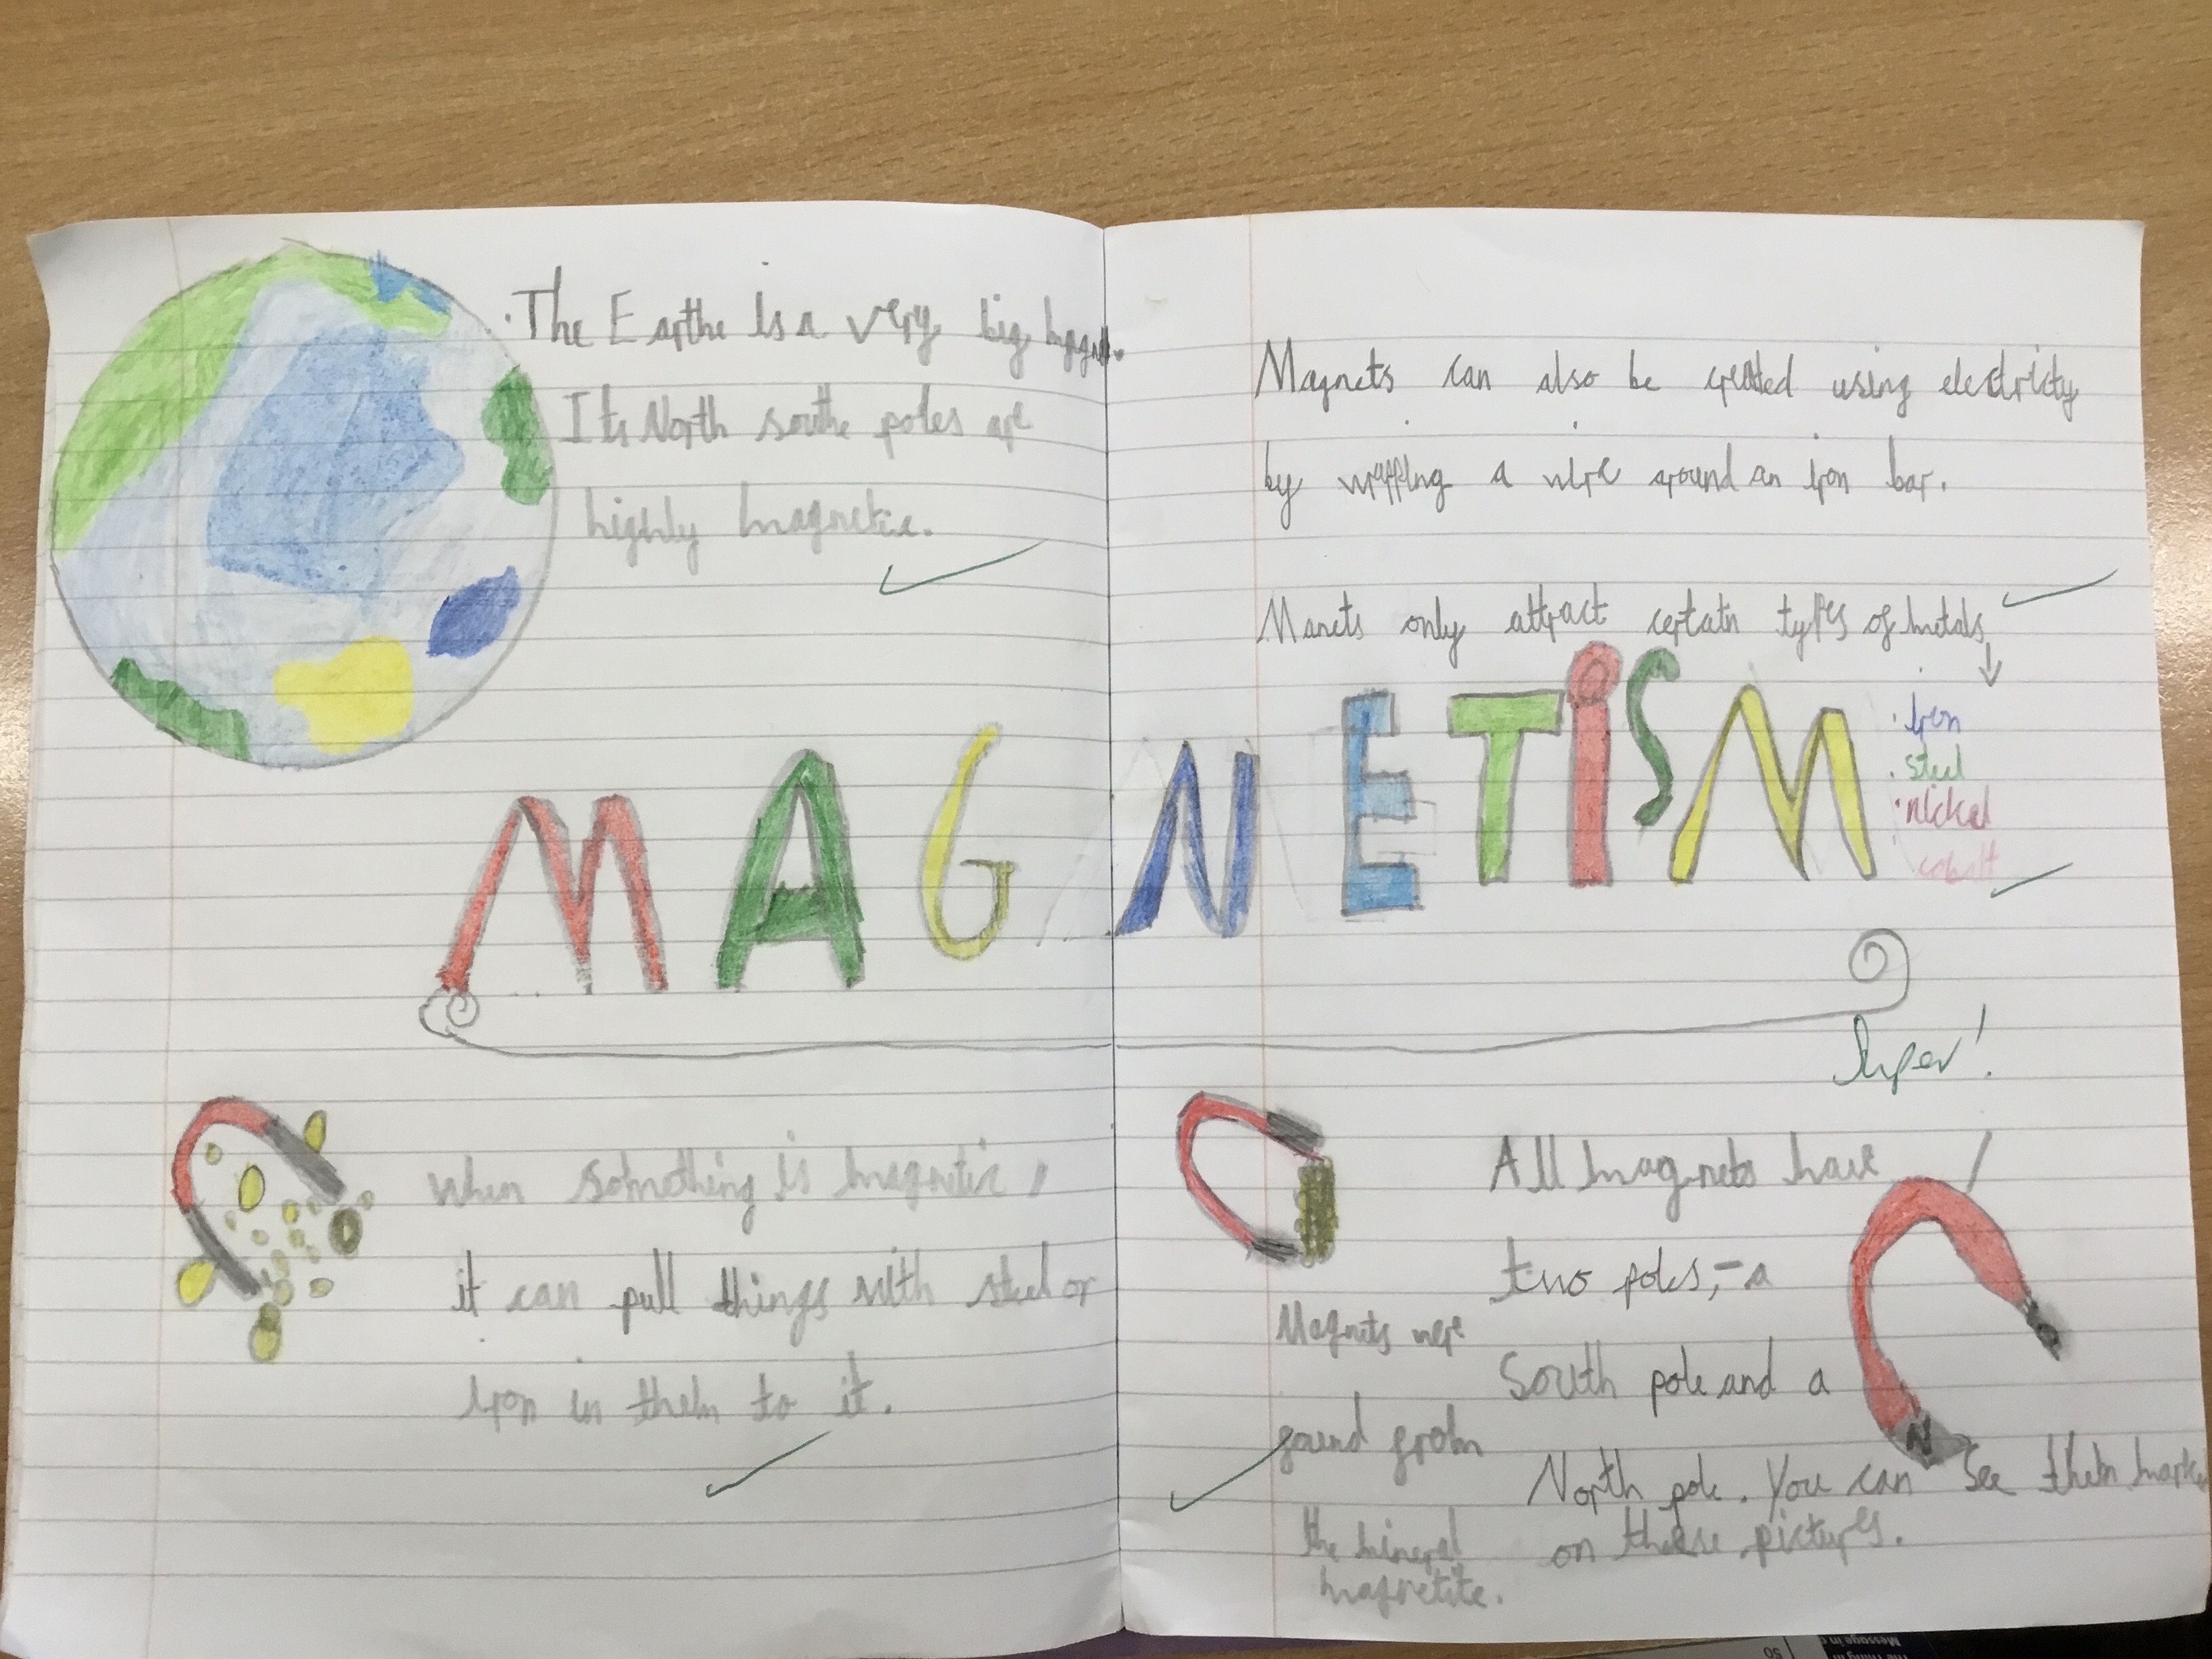 The Earthe is a very big
Its North southe poles are
highly magnetic.
Magnets can also be created using electricity
by wrapping a wire around an iron bar.
Manets only attract certain types of metals
iron
steel
nickel
cobalt
MAGNETiSM
Super!
when something is magnetic,
it can pull things with steel or
iron in them to it.
Magnets were
found from
the mineral
magnetite.
All magnets have
two poles, - a
South pole and a
North pole. You can see them marked
on these pictures.
N